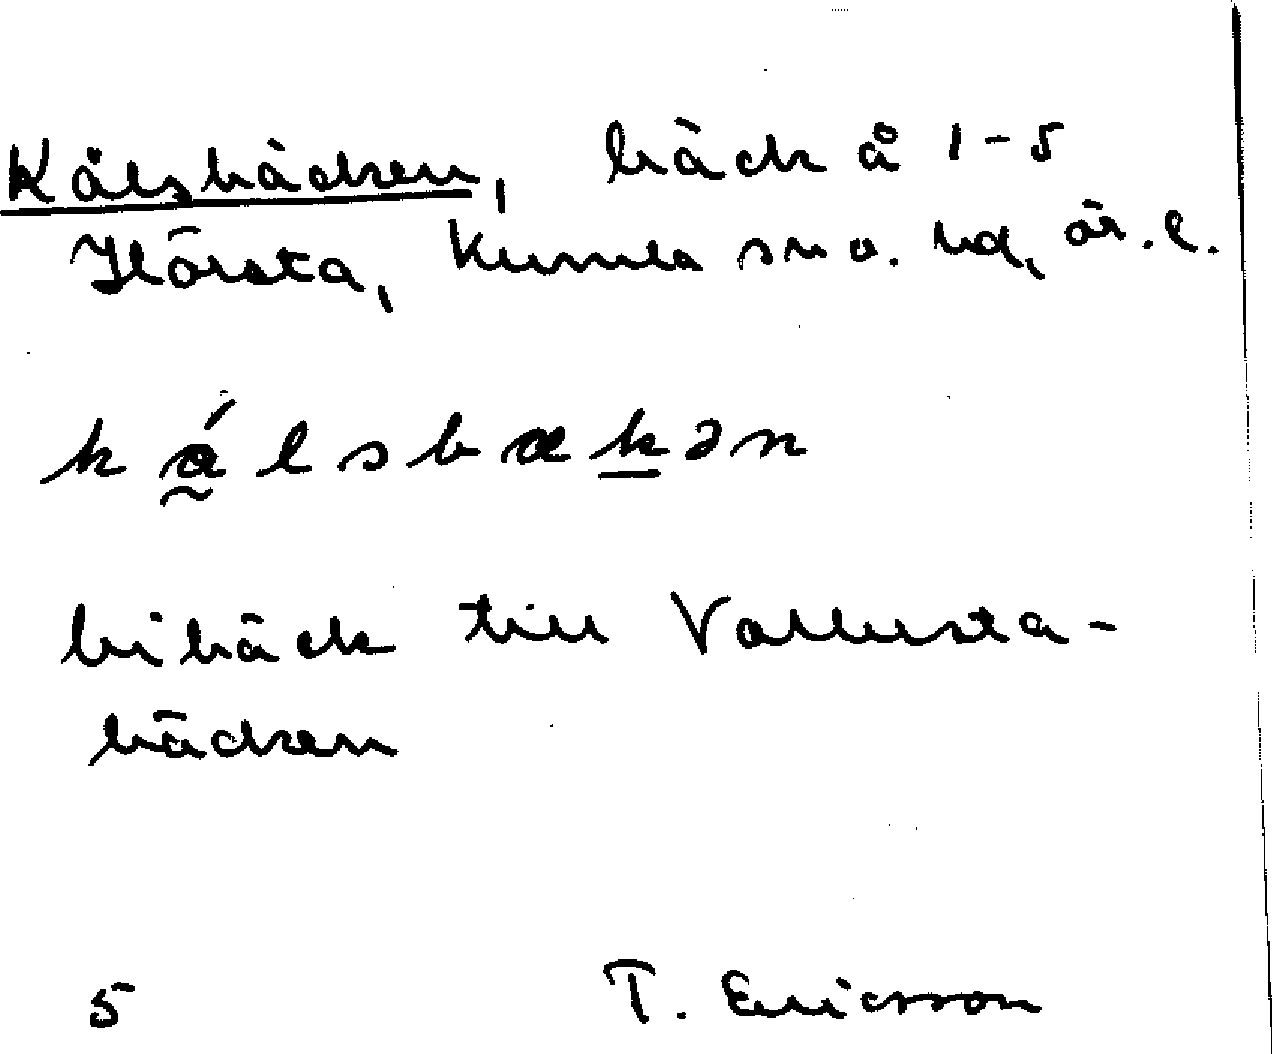 Kålsbäcken, bäck å 1-5
Hörsta, Kumla sn o. hd, ör. l.
kålsbækən
bibäck till Vallersta-
bäcken
5 T. Ericsson